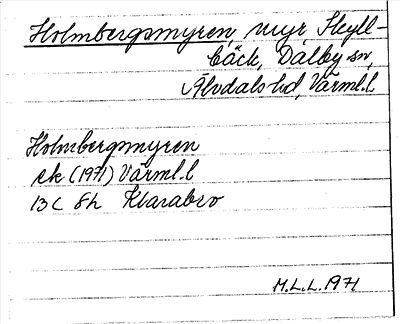 Holmbergsmyren, myr Skyll-
bäck, Dalby sn,
Älvdals hd, Värml.l
Holmbergsmyren
ek (1971) Värml.l
13C 8h Klarabro
M.L.L. 1971